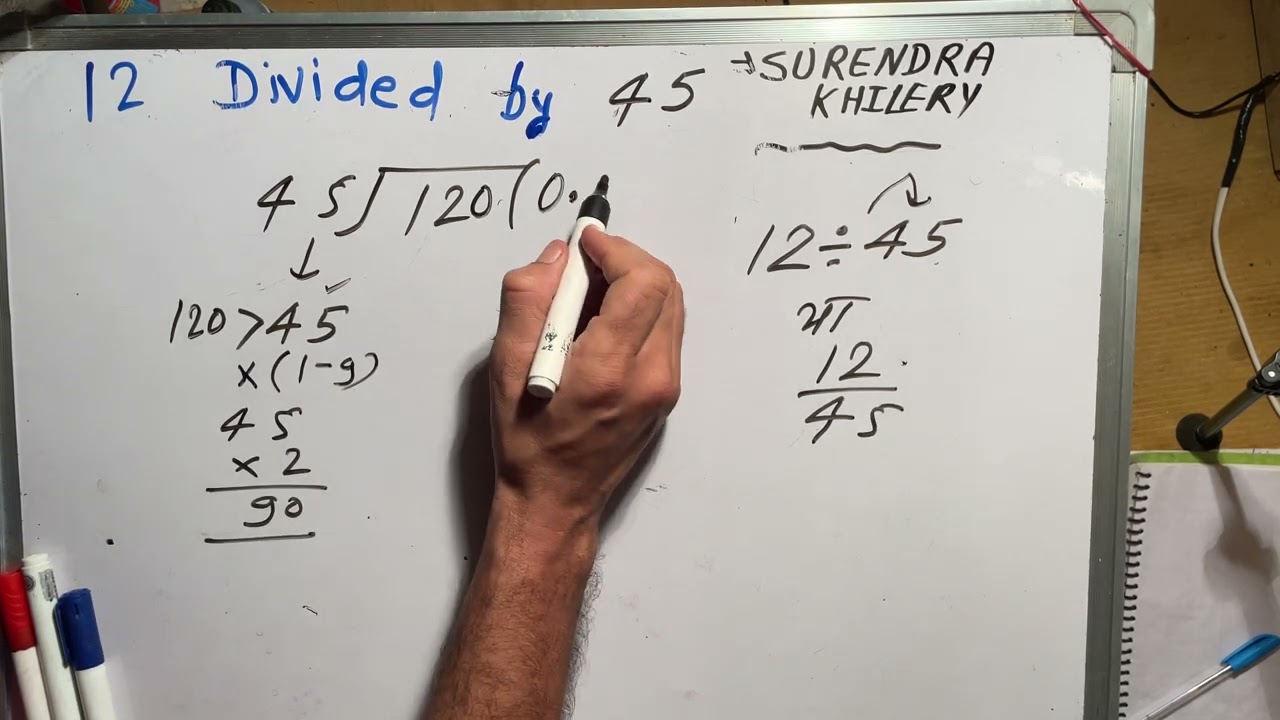 12 Divided by 45
→SURENDRA
KHILERY
45)120(0.
↓
120>45
×(1-9)
45
×2
90
12÷45
या
12
45